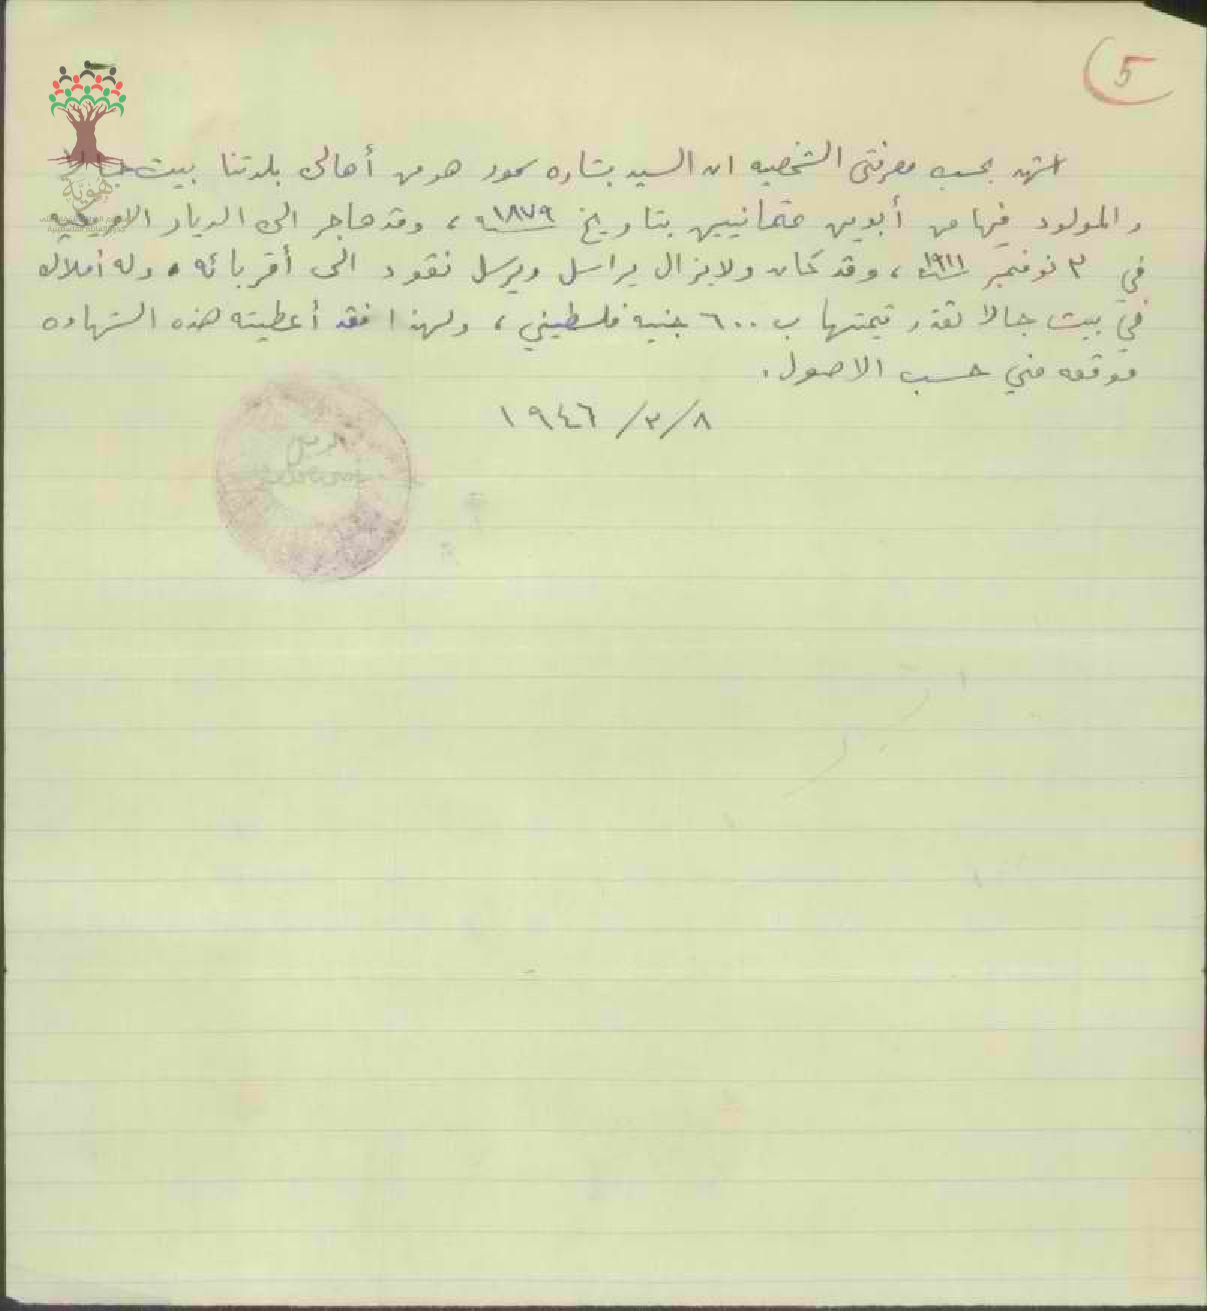 5
اشهد بحسب معرفتي الشخصيه ان السيد بشاره هو من أهالي بلدتنا بيت جالا
والمولود فيها من أبوين عثمانيين بتاريخ ١٨٧٩ ، وقد هاجر الى الديار الاميركيه
في ٣ نوفمبر ١٩١١ ، وقد كان ولا يزال يراسل ويرسل نقود الى أقربائه . وله أملاك
في بيت جالا تقدر قيمتها ب ٦٠٠ جنيه فلسطيني ، ولهذا فقد أعطيته هذه الشهاده
موقعه مني حسب الاصول .
١٩٤٦/٣/٨
الرئيس
هوية